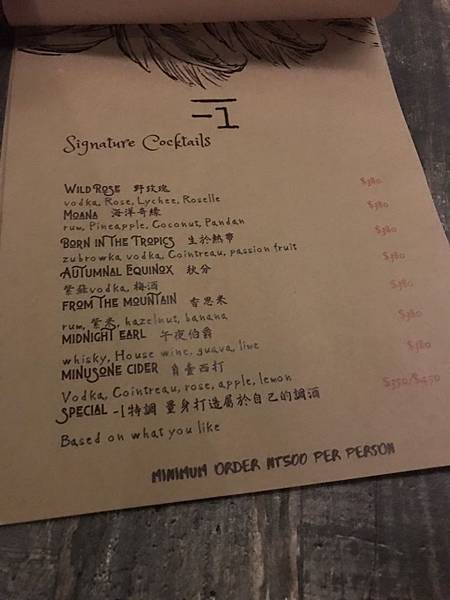 -1
Signature Cocktails
WILD ROSE 野玫瑰 $380
vodka, Rose, Lychee, Roselle
MOANA 海洋奇緣 $380
rum, Pineapple, Coconut, Pandan
BORN IN THE TROPICS 生於熱帶 $380
zubrowka vodka, Cointreau, passion fruit
AUTUMNAL EQUINOX 秋分 $380
紫蘇vodka, 梅酒
FROM THE MOUNTAIN 香思米 $380
rum, 紫米, hazelnut, banana
MIDNIGHT EARL 午夜伯爵 $380
whisky, House wine, guava, lime
MINUSONE CIDER 負壹西打 $380
Vodka, Cointreau, rose, apple, lemon
SPECIAL -1特調 量身打造屬於自己的調酒 $350/$450
Based on what you like
MINIMUM ORDER NT500 PER PERSON